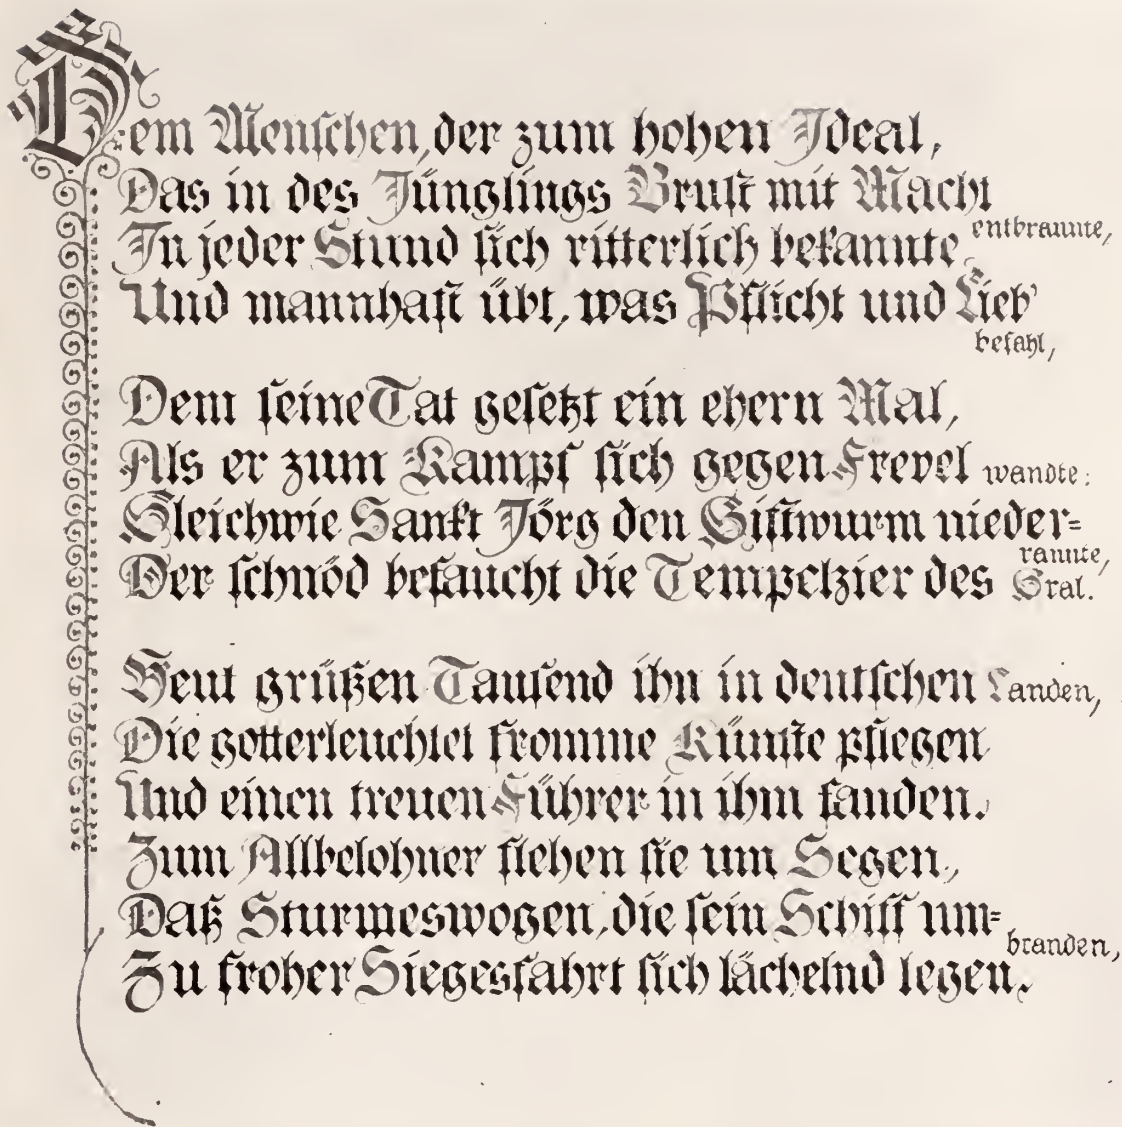 Dem Menschen, der zum hohen Ideal,
Das in des Jünglings Brust mit Macht
entbrannte,
In jeder Stund sich ritterlich bekannte,
Und mannhaft übt, was Pflicht und Lieb'
befahl,
Dem seine Tat gesetzt ein ehern Mal,
Als er zum Kampf sich gegen Frevel wandte:
Gleichwie Sankt Jörg den Giftwurm nieder=
rannte,
Der schnöd befaucht die Tempelzier des Gral.
Heut grüßen Tausend ihn in deutschen Landen,
Die gotterleuchtet fromme Künste pflegen
Und einen treuen Führer in ihm fanden.
Zum Allbelohner flehen sie um Segen,
Daß Sturmeswogen, die sein Schiff um=
branden,
Zu froher Siegesfahrt sich lächelnd legen.